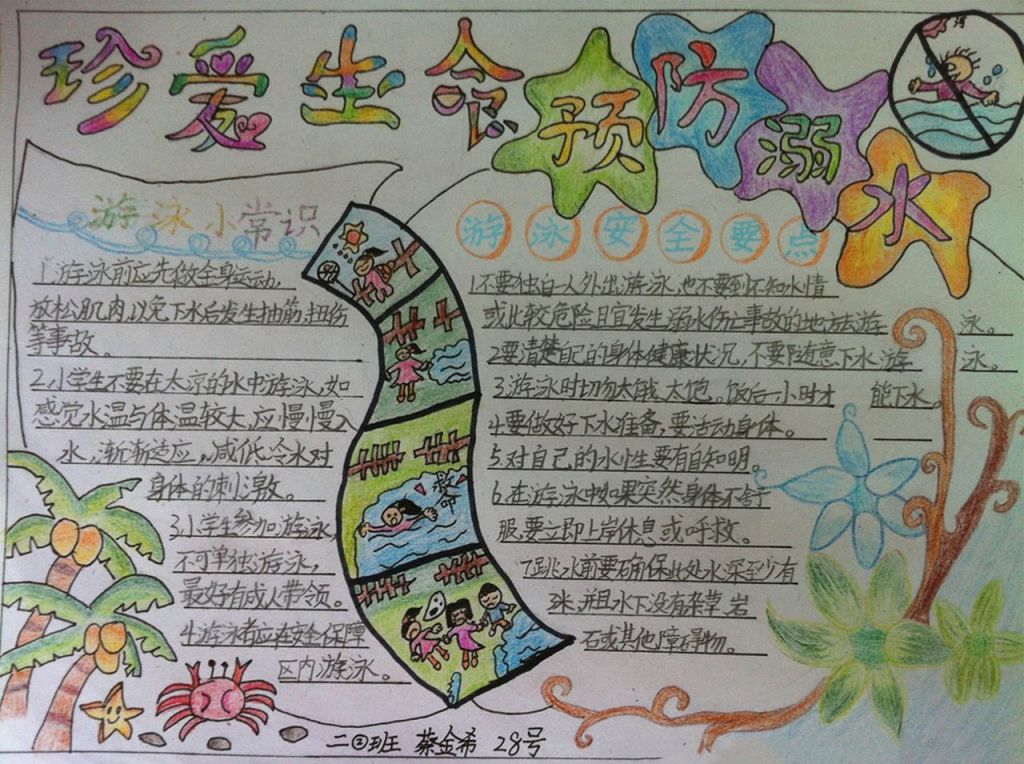 珍爱生命预防溺水
游泳小常识
1.游泳前应先做全身运动,
放松肌肉,以免下水后发生抽筋,扭伤
等事故。
2.小学生不要在太凉的水中游泳,如
感觉水温与体温较大,应慢慢入
水,渐渐适应,减低冷水对
身体的刺激。
3.小学生参加游泳,
不可单独游泳,
最好有成人带领。
4.游泳者应在安全保障
区内游泳。
救命
游泳安全要点
1.不要独自一人外出游泳,也不要到不知水情
或比较危险且宜发生溺水伤亡事故的地方去游泳。
2.要清楚自己的身体健康状况,不要随意下水游泳。
3.游泳时切勿太饿、太饱。饭后一小时才能下水。
4.要做好下水准备,要活动身体。
5.对自己的水性要有自知明。
6.在游泳中如果突然身体不舒
服,要立即上岸休息或呼救。
7.跳水前要确保此处水深至少有
3米,并且水下没有杂草岩
石或其他障碍物。
二②班 蔡金希 28号